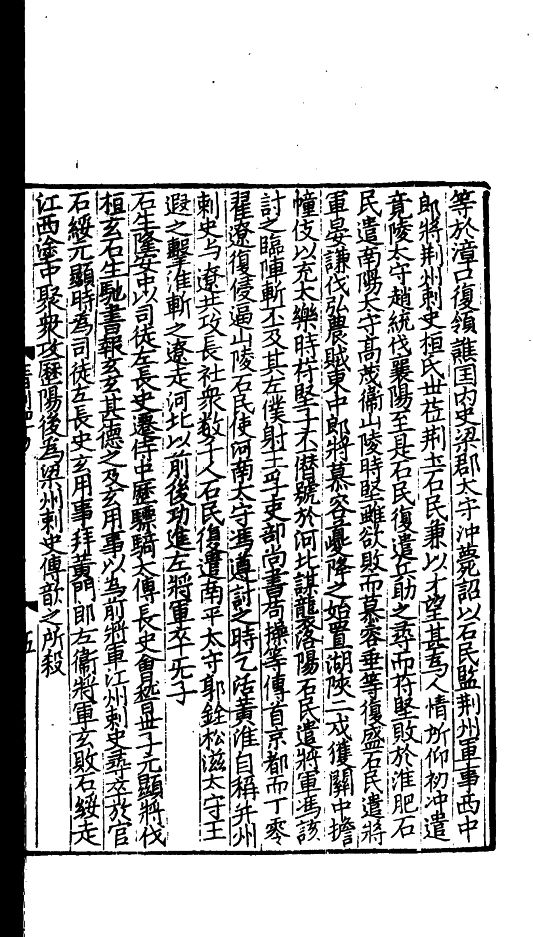 等於漳口復領譙国内史梁郡太守沖薨詔以石民監荆州軍事西中
郎將荆州刺史桓氏世莅荆土石民兼以才望甚爲人情所仰初冲遣
竟陵太守趙統伐襄陽至是石民復遣兵助之尋而苻堅敗於淮肥石
民遣南陽太守髙茂衞山陵時堅雖欲敗而慕容垂等復盛石民遣將
軍晏謙伐弘農賊東中郎將慕容夔降之始置湖陝二戍獲關中擔
幢伎以充太樂時苻堅子丕僣號於河北謀襲洛陽石民遣將軍馮該
討之臨陣斬丕及其左僕射王孚吏部尚書苟操等傳首京都而丁零
翟遼復侵逼山陵石民使河南太守馮遵討之時乞活黄淮自稱并州
刺史与遼共攻長社衆數千人石民復遣南平太守郭銓松滋太守王
遐之擊淮斬之遼走河北以前後功進左將軍卒无子
石生隆安中以司徒左長史遷侍中歷驃騎太傅長史會稽世子元顯將伐
桓玄石生馳書報玄玄甚德之及玄用事以為前將軍江州刺史尋卒於官
石綏元顯時為司徒左長史玄用事拜黄門郎左衞將軍玄敗石綏走
江西塗中聚衆攻歷陽後為梁州刺史傅歆之所殺
五